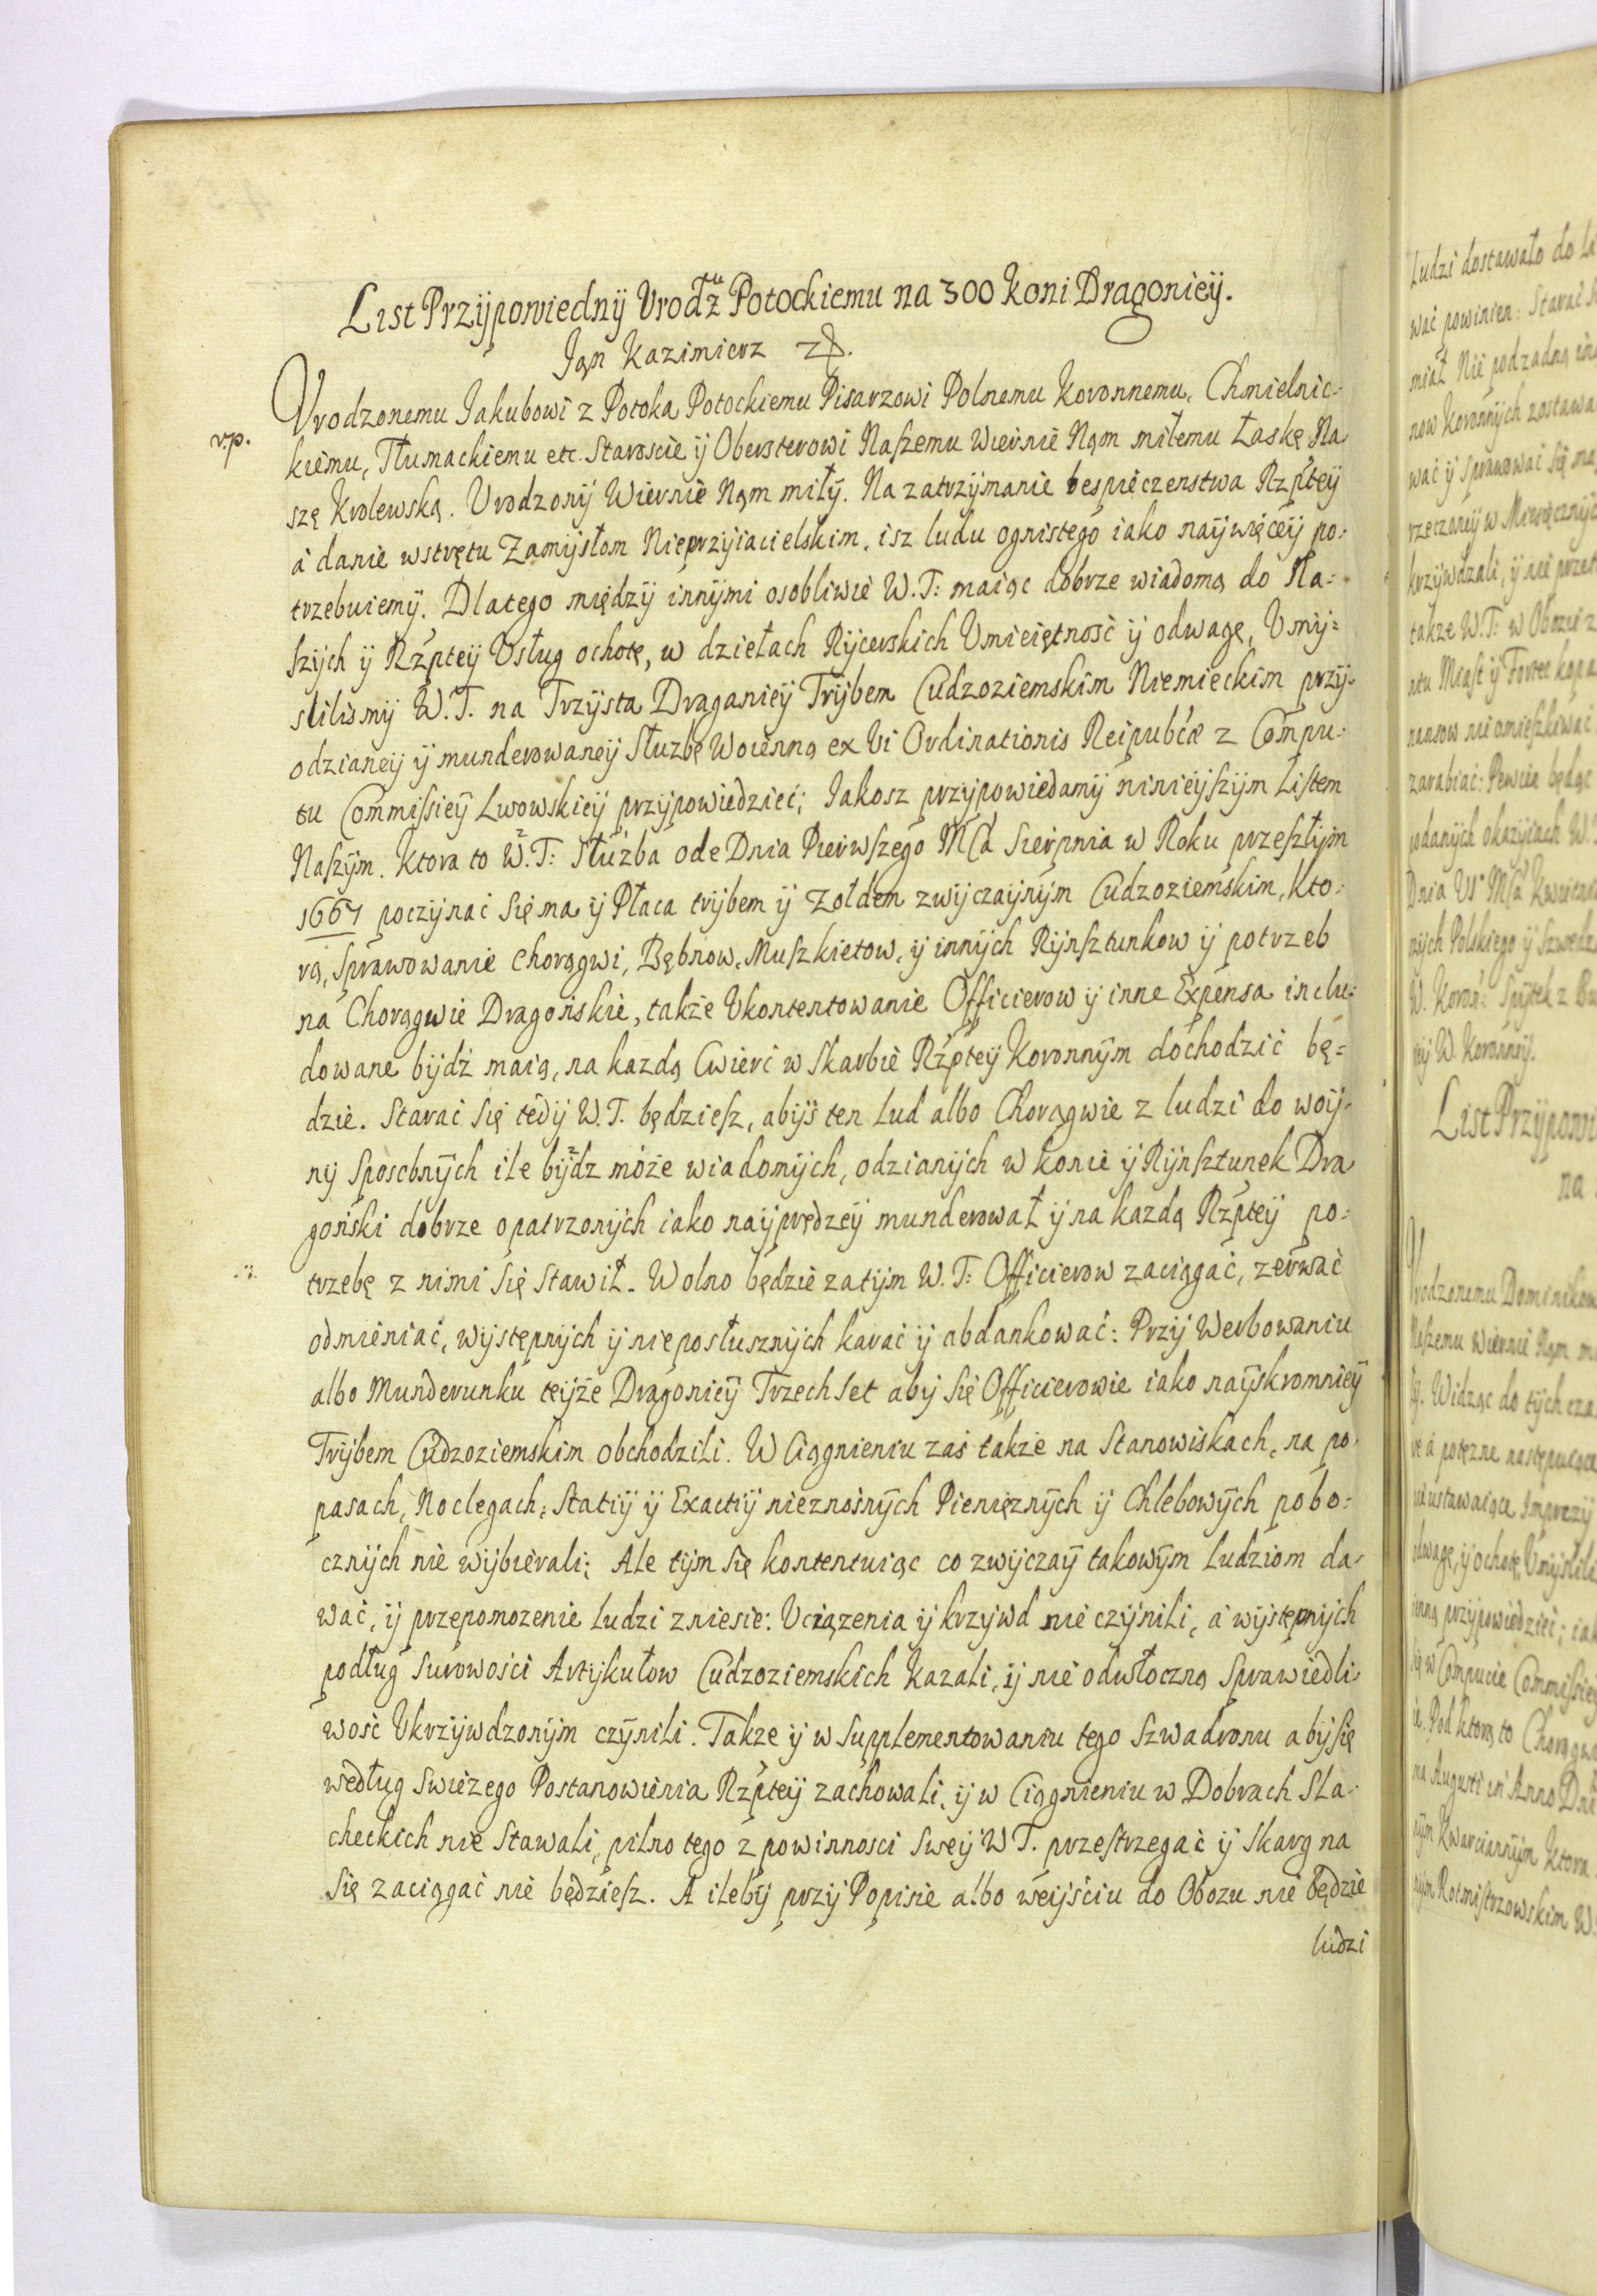 List Przypowiedny Vrodz<sup>u</sup> Potockiemu na 300 koni Dragoniey.
Jan Kazimierz
Vrodzonemu Jakubowi z Potoka Potockiemu Pisarzowi Polnemu Koronnemu, Chmielnic-
v.p.
kiemu, Tłumackiemu etc. Staroscie ij Obersterowi Naszemu Wiernie Nąm miłemu Łaskę Na
szę Krolewską. Vrodzony Wiernie Nąm miły. Na zatrzymanie bespieczenstwa Rzptey
á danie wstrętu Zamysłom Nieprzyiacielskim, isz ludu ognistego iako naywięcey po-
trzebuiemy. Dlatego między innymi osobliwie W.T: maiąc dobrze wiadomą do Na-
szych ij Rzptey Vsług ochotę, w dziełach Rycerskich Vmieiętnosc ij odwagę, Vmy-
slilismy W.T. na Trzysta Draganiey Trybem Cudzoziemskim Niemieckim przy-
odzianey ij munderowaney Służbę Woienną ex Vi Ordinationis Reipubcæ z Compu-
tu Commissiey Lwowskiey przypowiedziec; Jakosz przypowiedamy ninieyszym Listem
Naszym. Ktora to W.T: Służba ode Dnia Pierwszego Mca Sierpnia w Roku przeszłym
1667 poczynac się ma ij Płaca trybem ij Zołdem zwyczaynym Cudzoziemskim, kto-
rą, sprawowanie chorągwi, Bębnow, Muszkietow, ij innych Rynsztunkow ij potrzeb
na Chorągwie Dragońskie, także Vkontentowanie Officierow ij inne Expensa inclu-
dowane bydź maią, na kazdą Cwierc w Skarbie Rzptey Koronnym dochodzic bę-
dzie. Starac się tedy W.T. będziesz, abys ten lud albo Chorągwie z ludzi do woy-
ny sposobnych ile bydz moźe wiadomych, odzianych w konie ij Rynsztunek Dra
goński dobrze opatrzonych iako nayprędzey munderował ij na kazdą Rzptey po-
trzebę z nimi się stawił. Wolno będzie zatym W.T: Officierow zaciągać, zerwać
odmieniać, występnych ij nieposłusznych karać ij abdankować: Przy Werbowaniu
albo Munderunku teyże Dragoniey Trzechset aby się Officierowie iako nayskromniey
Trybem Cudzoziemskim obchodzili. W Ciągnieniu zas także na Stanowiskach, na po-
pasach, Noclegach, Statiy ij Exactiy nieznośnych Pieniężnych ij Chlebowych pobo-
cznych nie wybierali; Ale tym się kontentuiąc co zwyczay takowym ludziom da-
wać, ij przepomozenie ludzi zniesie: Uciązenia ij krzywd nie czynili, á występnych
podług surowości Artykułow Cudzoziemskich kazali, ij nie odwłoczną sprawiedli-
wość Vkrzywdzonym czynili. Także ij w supplementowaniu tego Szwadronu aby się
według swiezego Postanowienia Rzptey zachowali, ij w Ciągnieniu w Dobrach Sla-
checkich nie stawali, pilno tego z powinnosci swey W T. przestrzegać ij Skarg na
się zaciągać nie będziesz. A ileby przy Popisie albo weyściu do Obozu nie będzie
ludzi
Ludzi dostawało do
wać powinien: Starać
miał Nie podzadną
now Koronnych zostawa
wać ij sprawować się
rzeczoney w Miesięcznych
krzywdzali, ij nie przet
także W.T: w Obozie z
ntu Miast ij Fortec kopa
zarabiać: Pewien będąc
podanych okazyiach W.
nych Polskiego ij Szwedz
ey W. Koronney.
List Przypowi
na
Vrodzonemu Dominikow
Naszemu Wiernie Nąm m
ły. Widząc do tych cza
te á potężne następuiące
nieustawaiące Imprezy
odwagę, ij ochotę Vmyslili
ienną przypowiedziec; iak
się w Compucie Commissiey
ie. Pod ktorą to Chorągwią
na Augusti in Anno Dni
nym Kwarcianym Ktora
nym Rotmistrzowskim W